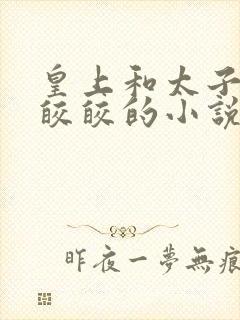 皇上和太子
皎皎的小說
昨夜一夢無痕